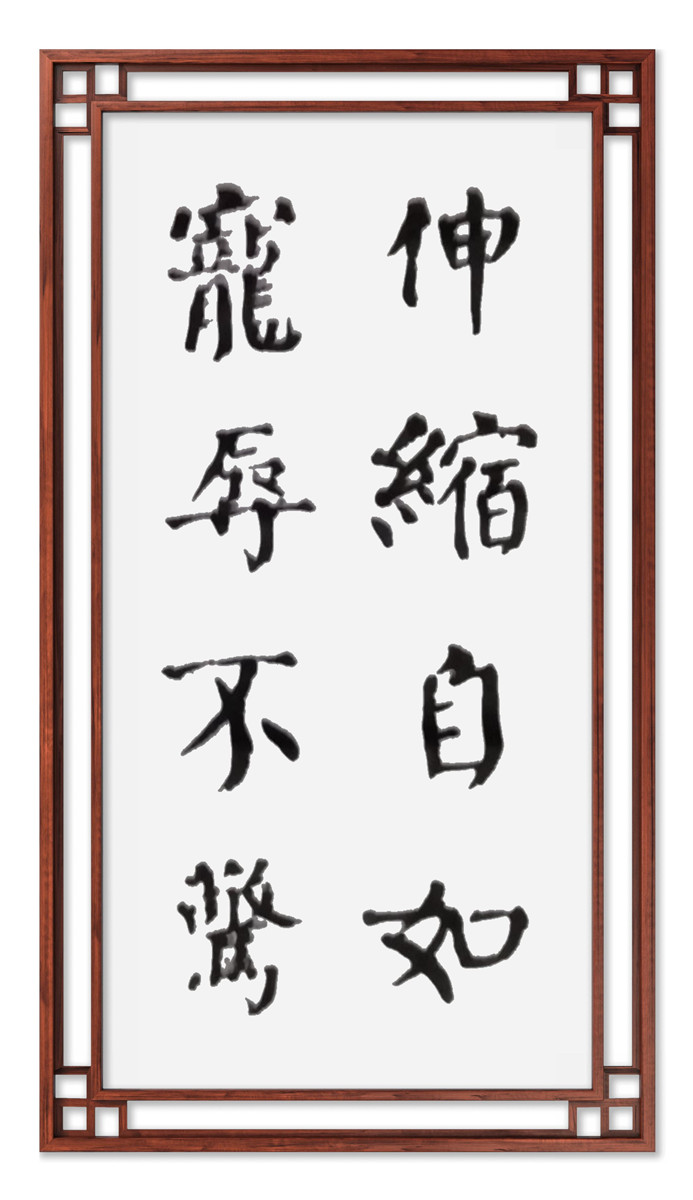 伸縮自如
寵辱不驚